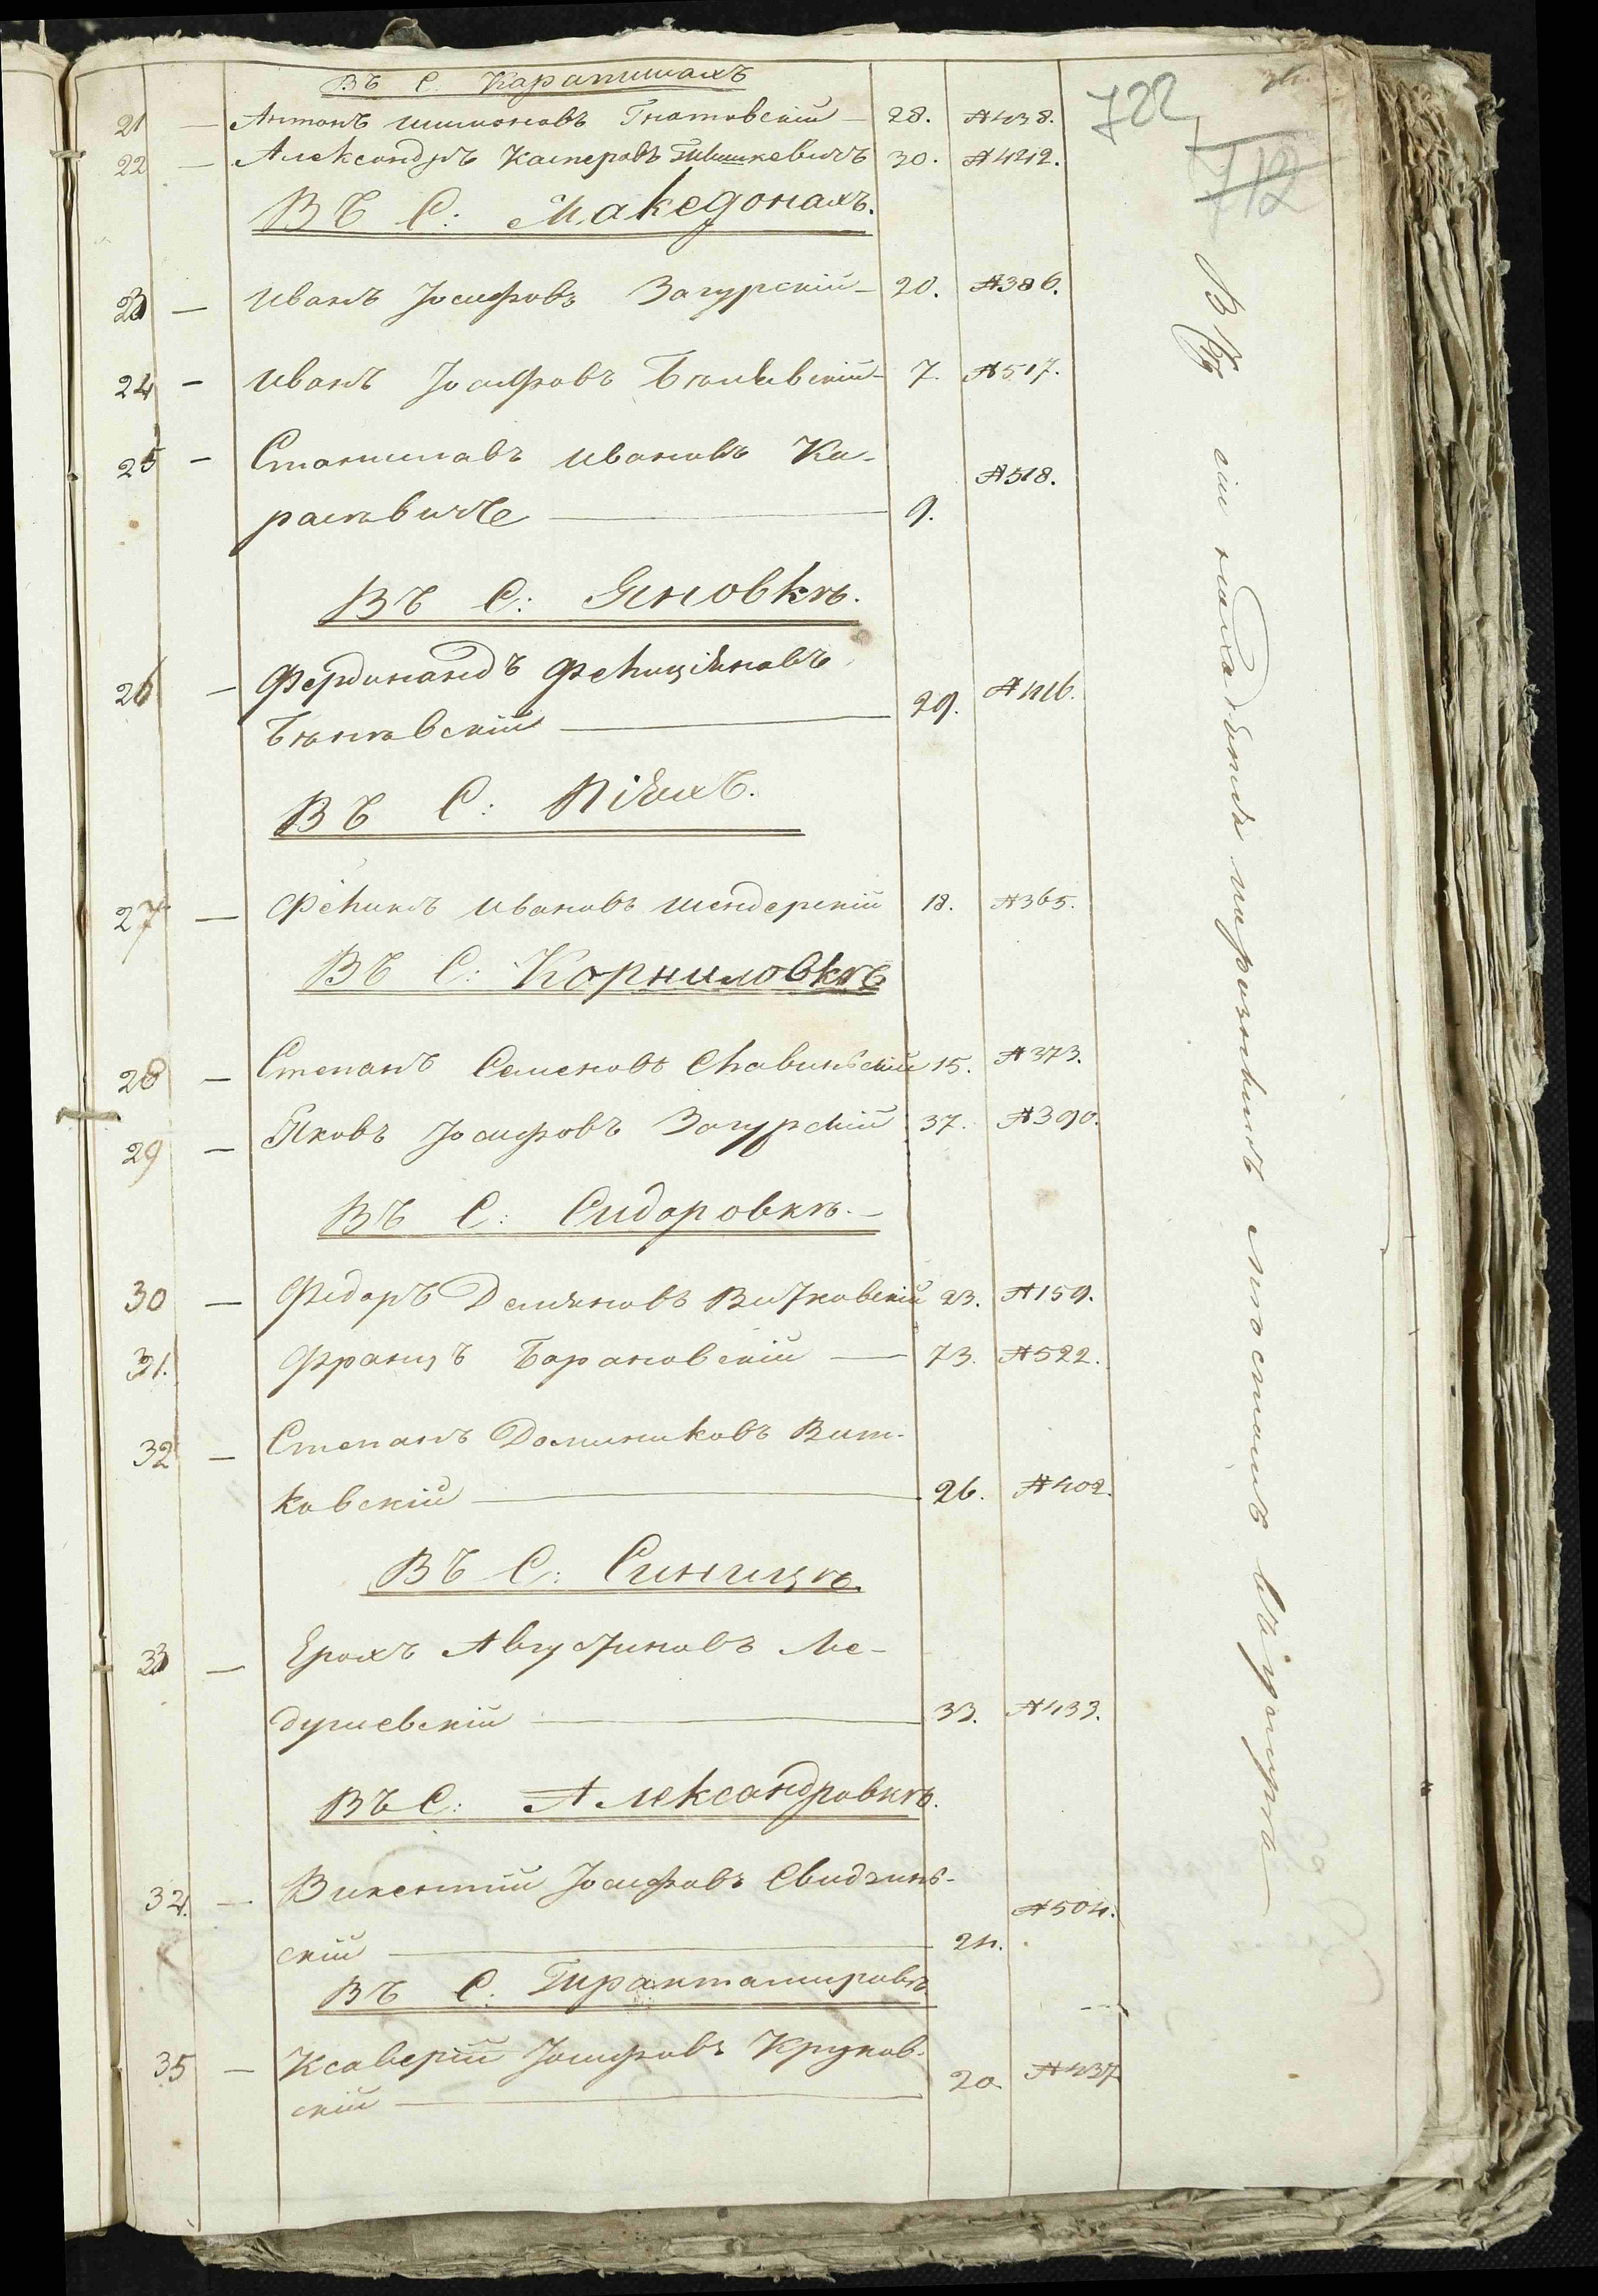 Въ С. Карапишахъ
21 — Антонъ Шимоновъ Гнатовскій — 28. №438.
22 — Александръ Касперовъ 30. №4212.
722
712
Въ С: Македонахъ.
23 — Иванъ Іосифовъ Загурскій — 20. №386.
24 — Иванъ Іосифовъ 7. №517.
25 — Станиславъ Ивановъ Ка-
расевичъ — 9. №518.
Въ С: Яновкѣ.
26 — Фердинандъ Феликсіяновъ
Бѣнковскій — 29. №
Въ С:
27 — Феликсъ Ивановъ Шендерскій 18. №365.
Въ С: Корниловкѣ
28 — Степанъ Семеновъ Славинскій 15. №373.
29 — Яковъ Іосифовъ Загурскій 37. №390.
Въ С: Сидоровкѣ. —
30 — Федоръ Демяновъ Витковскій 23. №159.
31. Францъ Барановскій — 73. №522.
32 — Степанъ Доминиковъ Вит-
ковскій — 26. №402.
Въ С: Синицѣ.
33 — Ерохъ Августиновъ Ме-
душевскій — 33. №433.
Въ С: Александровкѣ.
34. — Викентій Іосифовъ Свидзинь-
скій — 24. №504.
Въ С.
35 — Ксаверій Іосифовъ Круков-
скій — 20 №437
Всѣ сіи находятся на